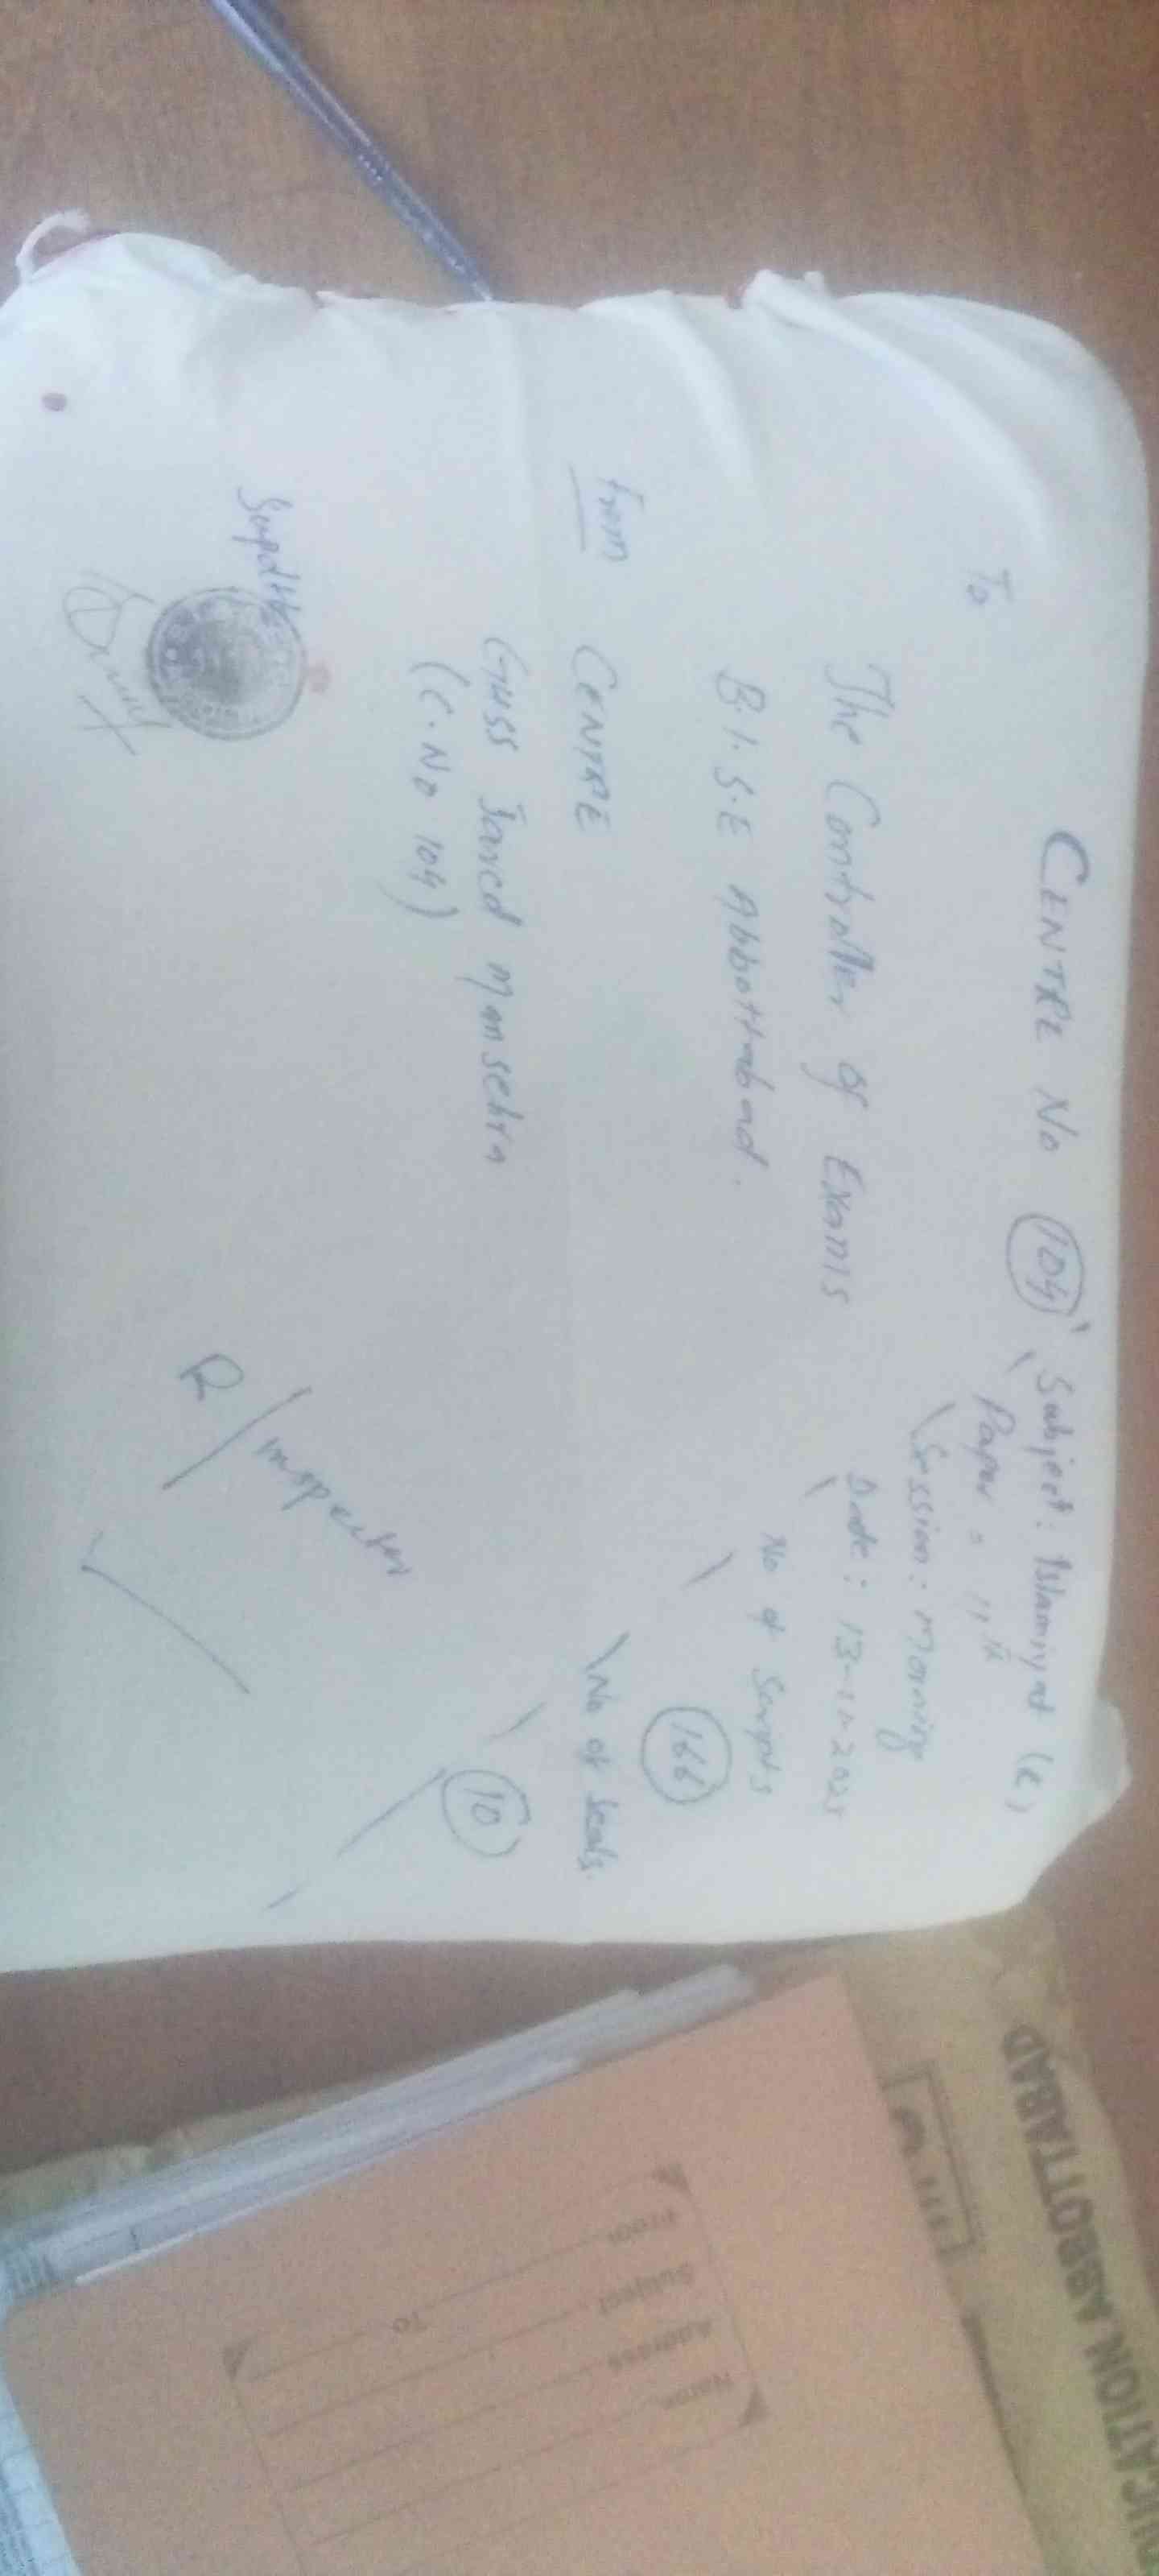 CENTRE No 104
Subject: Islamiyat (C)
Paper = 11th
Session: Morning
Date: 13-11-2025
No of Scripts
166
No of Seals.
10
To
The Controller of Exams
B.I.S.E Abbottabad.
From
CENTRE
GHSS Jared Mansehra
(C.No 104)
Supdtt
R/Inspector
UCATION ABBOTTABAD
Name
Address
Subject
From
To